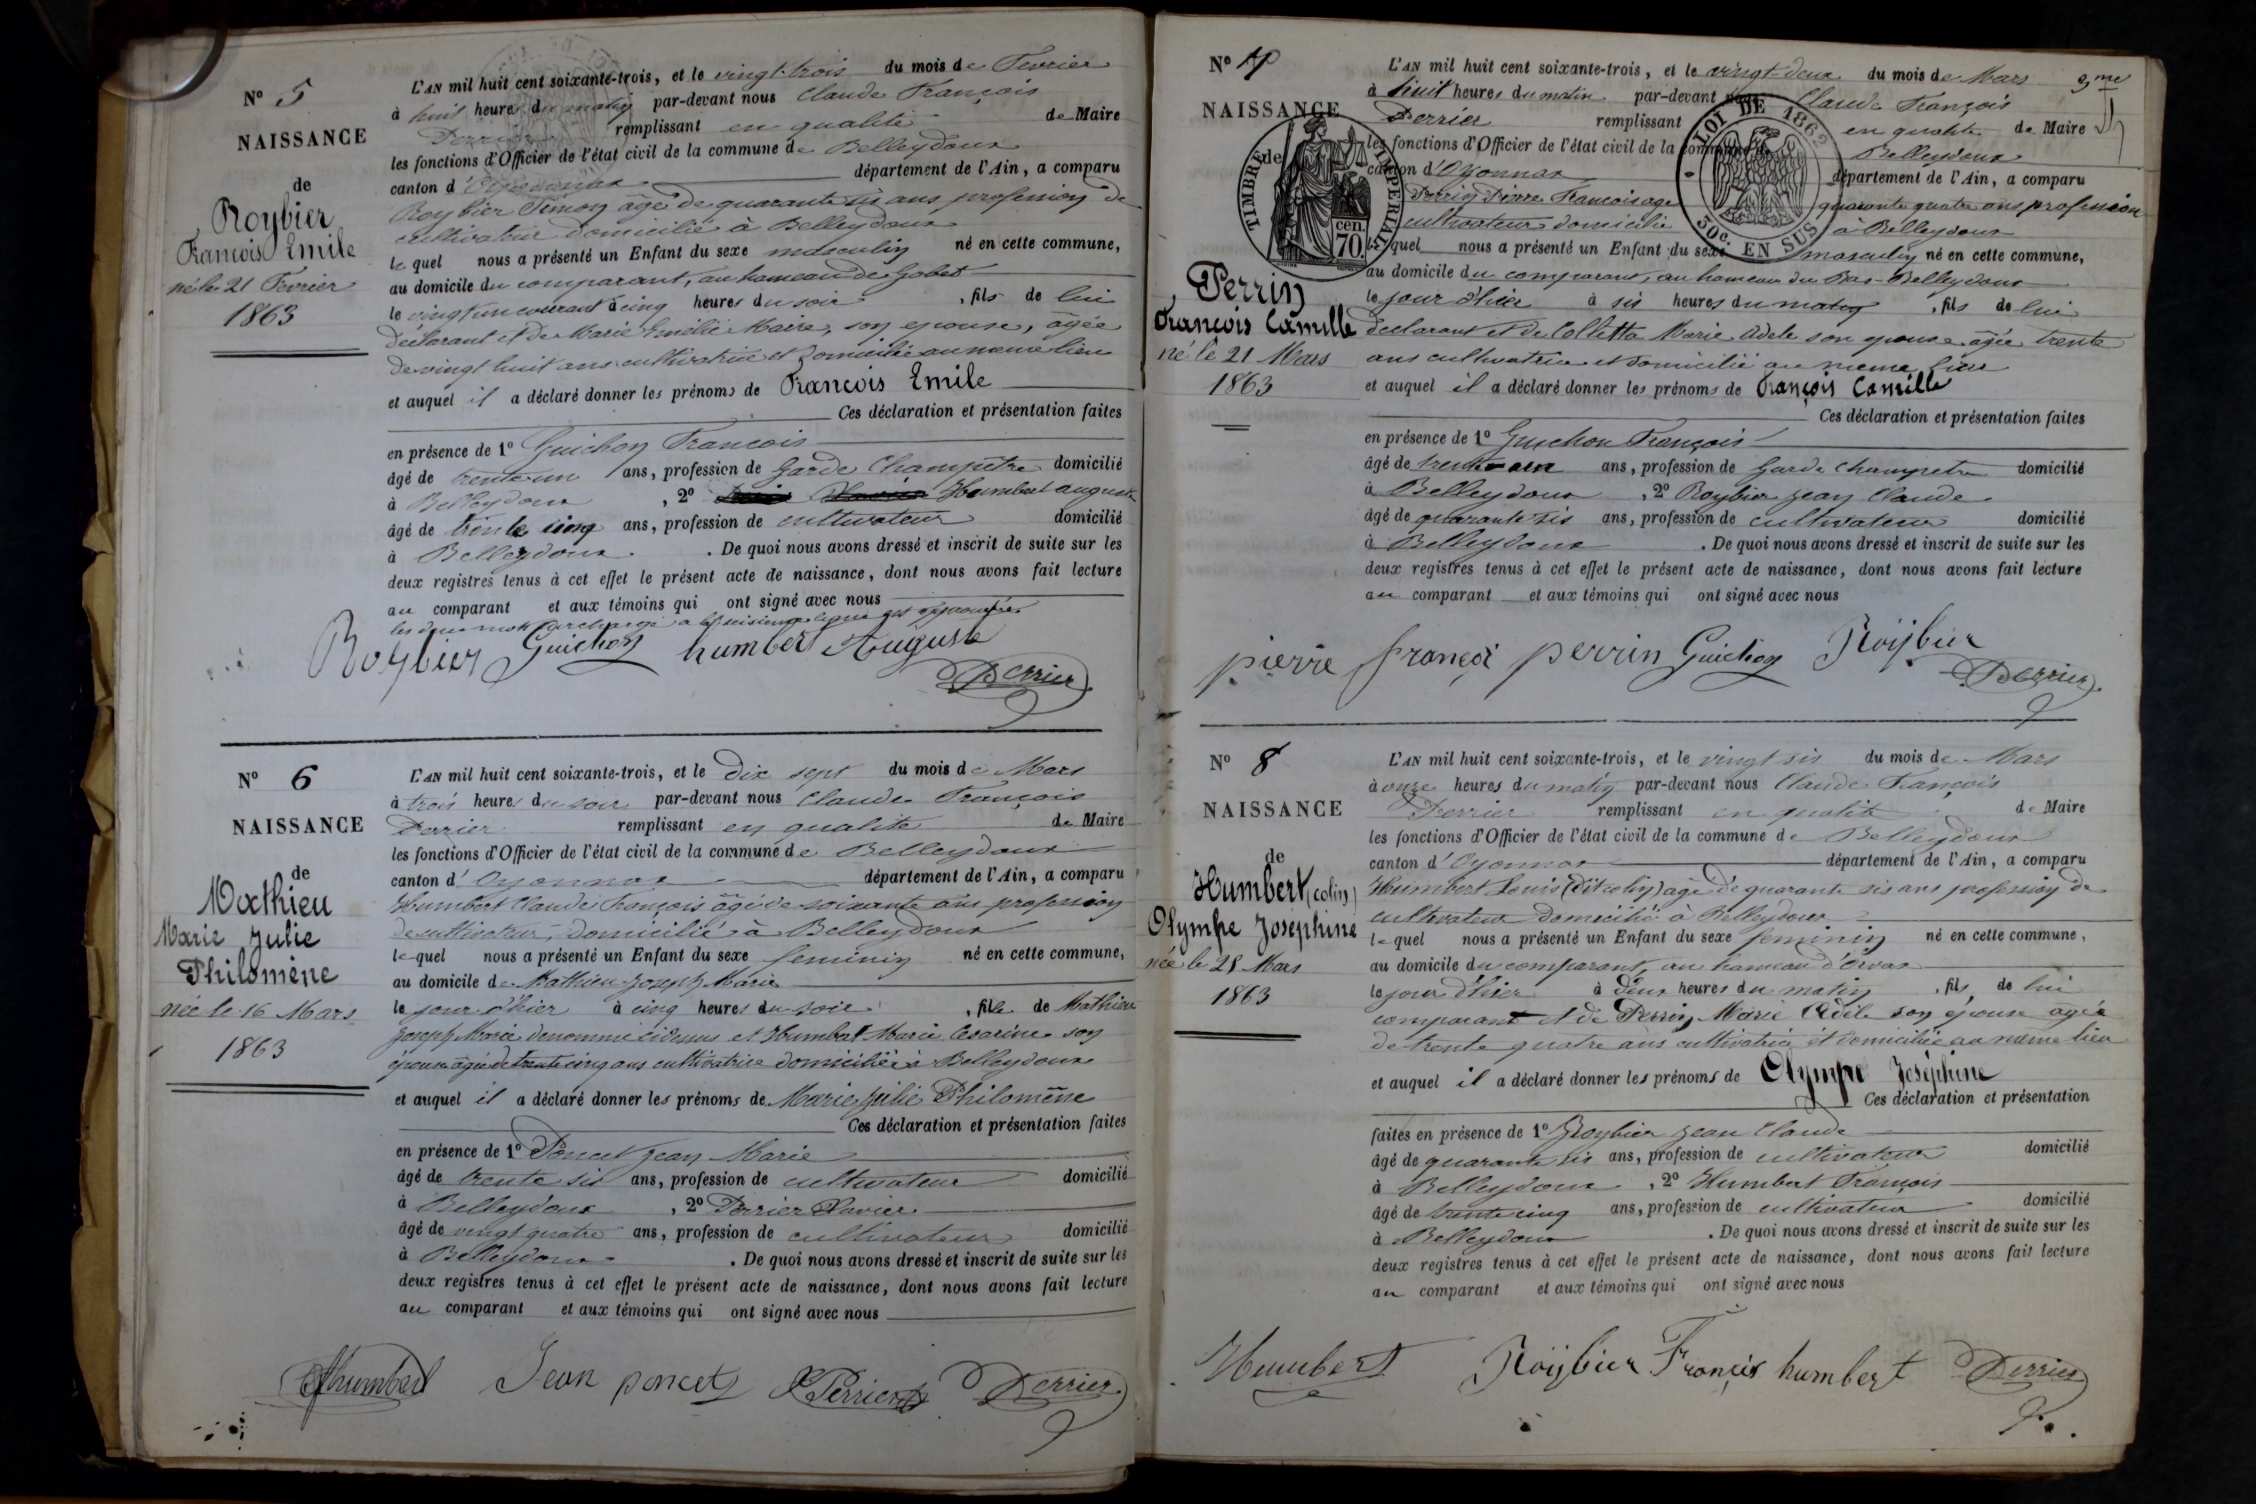 N° 5
NAISSANCE
de
Roybier
François Emile
né le 21 Fevrier
1863
L'AN mil huit cent soixante-trois, et le vingt-trois du mois de Fevrier
à huit heures du matin par-devant nous Claude François
Perrier remplissant en qualité de Maire
les fonctions d'Officier de l'état civil de la commune de Belleydoux
canton d'Oyonnax département de l'Ain, a comparu
Roybier Simon agé de quarante six ans profession de
cultivateur domicilié à Belleydoux
lequel nous a présenté un Enfant du sexe masculin né en cette commune,
au domicile du comparant, au hameau de Gobet
le vingt un courant à cinq heures du soir, fils de lui
déclarant et de Marie Emélie Maire, son epouse, âgée
de vingt huit ans cultivatrice et domiciliée au meme lieu
et auquel il a déclaré donner les prénoms de François Emile
Ces déclaration et présentation faites
en présence de 1° Guichon François
âgé de trente un ans, profession de Garde Champêtre domicilié
à Belleydoux, 2° Humbert auguste
âgé de trente cinq ans, profession de cultivateur domicilié
à Belleydoux. De quoi nous avons dressé et inscrit de suite sur les
deux registres tenus à cet effet le présent acte de naissance, dont nous avons fait lecture
au comparant et aux témoins qui ont signé avec nous
les deux mots surchargé a la ligne
Roybier Guichon humbert Auguste
Perrier
N° 6
NAISSANCE
de
Mathieu
Marie Julie
Philomène
née le 16 Mars
1863
L'AN mil huit cent soixante-trois, et le dix sept du mois de Mars
à trois heures du soir par-devant nous Claude François
Perrier remplissant en qualité de Maire
les fonctions d'Officier de l'état civil de la commune de Belleydoux
canton d'Oyonnax département de l'Ain, a comparu
Humbert Claude François âgé de soixante ans profession
de cultivateur, domicilié à Belleydoux
lequel nous a présenté un Enfant du sexe feminin né en cette commune,
au domicile de Mathieu Joseph Marie
le jour d'hier à cinq heures du soir, fille de Mathieu
Joseph Marie denommé cidessus et Humbert Marie Cesarine son
épouse agée de trente cinq ans cultivatrice domiciliée à Belleydoux
et auquel il a déclaré donner les prénoms de Marie Julie Philomène
Ces déclaration et présentation faites
en présence de 1° Poncet Jean Marie
âgé de trente six ans, profession de cultivateur domicilié
à Belleydoux, 2° Perrier Xavier
âgé de vingt quatre ans, profession de cultivateur domicilié
à Belleydoux. De quoi nous avons dressé et inscrit de suite sur les
deux registres tenus à cet effet le présent acte de naissance, dont nous avons fait lecture
au comparant et aux témoins qui ont signé avec nous
humbert Jean poncet Perrier Perrier
N° 7
NAISSANCE
de
Perrin
François Camille
né le 21 Mars
1863
TIMBRE IMPERIAL
70. cen.
LOI DE 1862
30c. EN SUS
3me
L'AN mil huit cent soixante-trois, et le vingt-deux du mois de Mars
à huit heures du matin par-devant nous Claude François
Perrier remplissant en qualité de Maire
les fonctions d'Officier de l'état civil de la commune de Belleydoux
canton d'Oyonnax département de l'Ain, a comparu
Perrin Pierre François agé quarante quatre ans profession
cultivateur domicilié à Belleydoux
lequel nous a présenté un Enfant du sexe masculin né en cette commune,
au domicile du comparant, au hameau du Bas-Belleydoux
le jour d'hier à six heures du matin, fils de lui
declarant et de Colletta Marie Adele son epouse agée trente
ans cultivatrice et domicilié au meme lieu
et auquel il a déclaré donner les prénoms de François Camille
Ces déclaration et présentation faites
en présence de 1° Guichon François
âgé de trente un ans, profession de Garde champetre domicilié
à Belleydoux, 2° Roybier Jean Claude
âgé de quarante six ans, profession de cultivateur domicilié
à Belleydoux. De quoi nous avons dressé et inscrit de suite sur les
deux registres tenus à cet effet le présent acte de naissance, dont nous avons fait lecture
au comparant et aux témoins qui ont signé avec nous
pierre françoi perrin Guichon Roÿbier
Perrier
N° 8
NAISSANCE
de
Humbert (colin)
Olympe Joséphine
née le 28 Mars
1863
L'AN mil huit cent soixante-trois, et le vingt six du mois de Mars
à onze heures du matin par-devant nous Claude François
Perrier remplissant en qualité de Maire
les fonctions d'Officier de l'état civil de la commune de Belleydoux
canton d'Oyonnax département de l'Ain, a comparu
Humbert Louis (dit colin) agé de quarante six ans profession de
cultivateur domicilié à Belleydoux
lequel nous a présenté un Enfant du sexe feminin né en cette commune,
au domicile du comparant, au hameau d'Orvaz
le jour d'hier à deux heures du matin, fils de lui
comparant et de Perrin Marie Adèle son épouse agée
de trente quatre ans cultivatrice et domiciliée au même lieu
et auquel il a déclaré donner les prénoms de Olympe Joséphine
Ces déclaration et présentation
faites en présence de 1° Roybier Jean Claude
âgé de quarante six ans, profession de cultivateur domicilié
à Belleydoux, 2° Humbert François
âgé de trente cinq ans, profession de cultivateur domicilié
à Belleydoux. De quoi nous avons dressé et inscrit de suite sur les
deux registres tenus à cet effet le présent acte de naissance, dont nous avons fait lecture
au comparant et aux témoins qui ont signé avec nous
Humbert Roÿbier François humbert Perrier